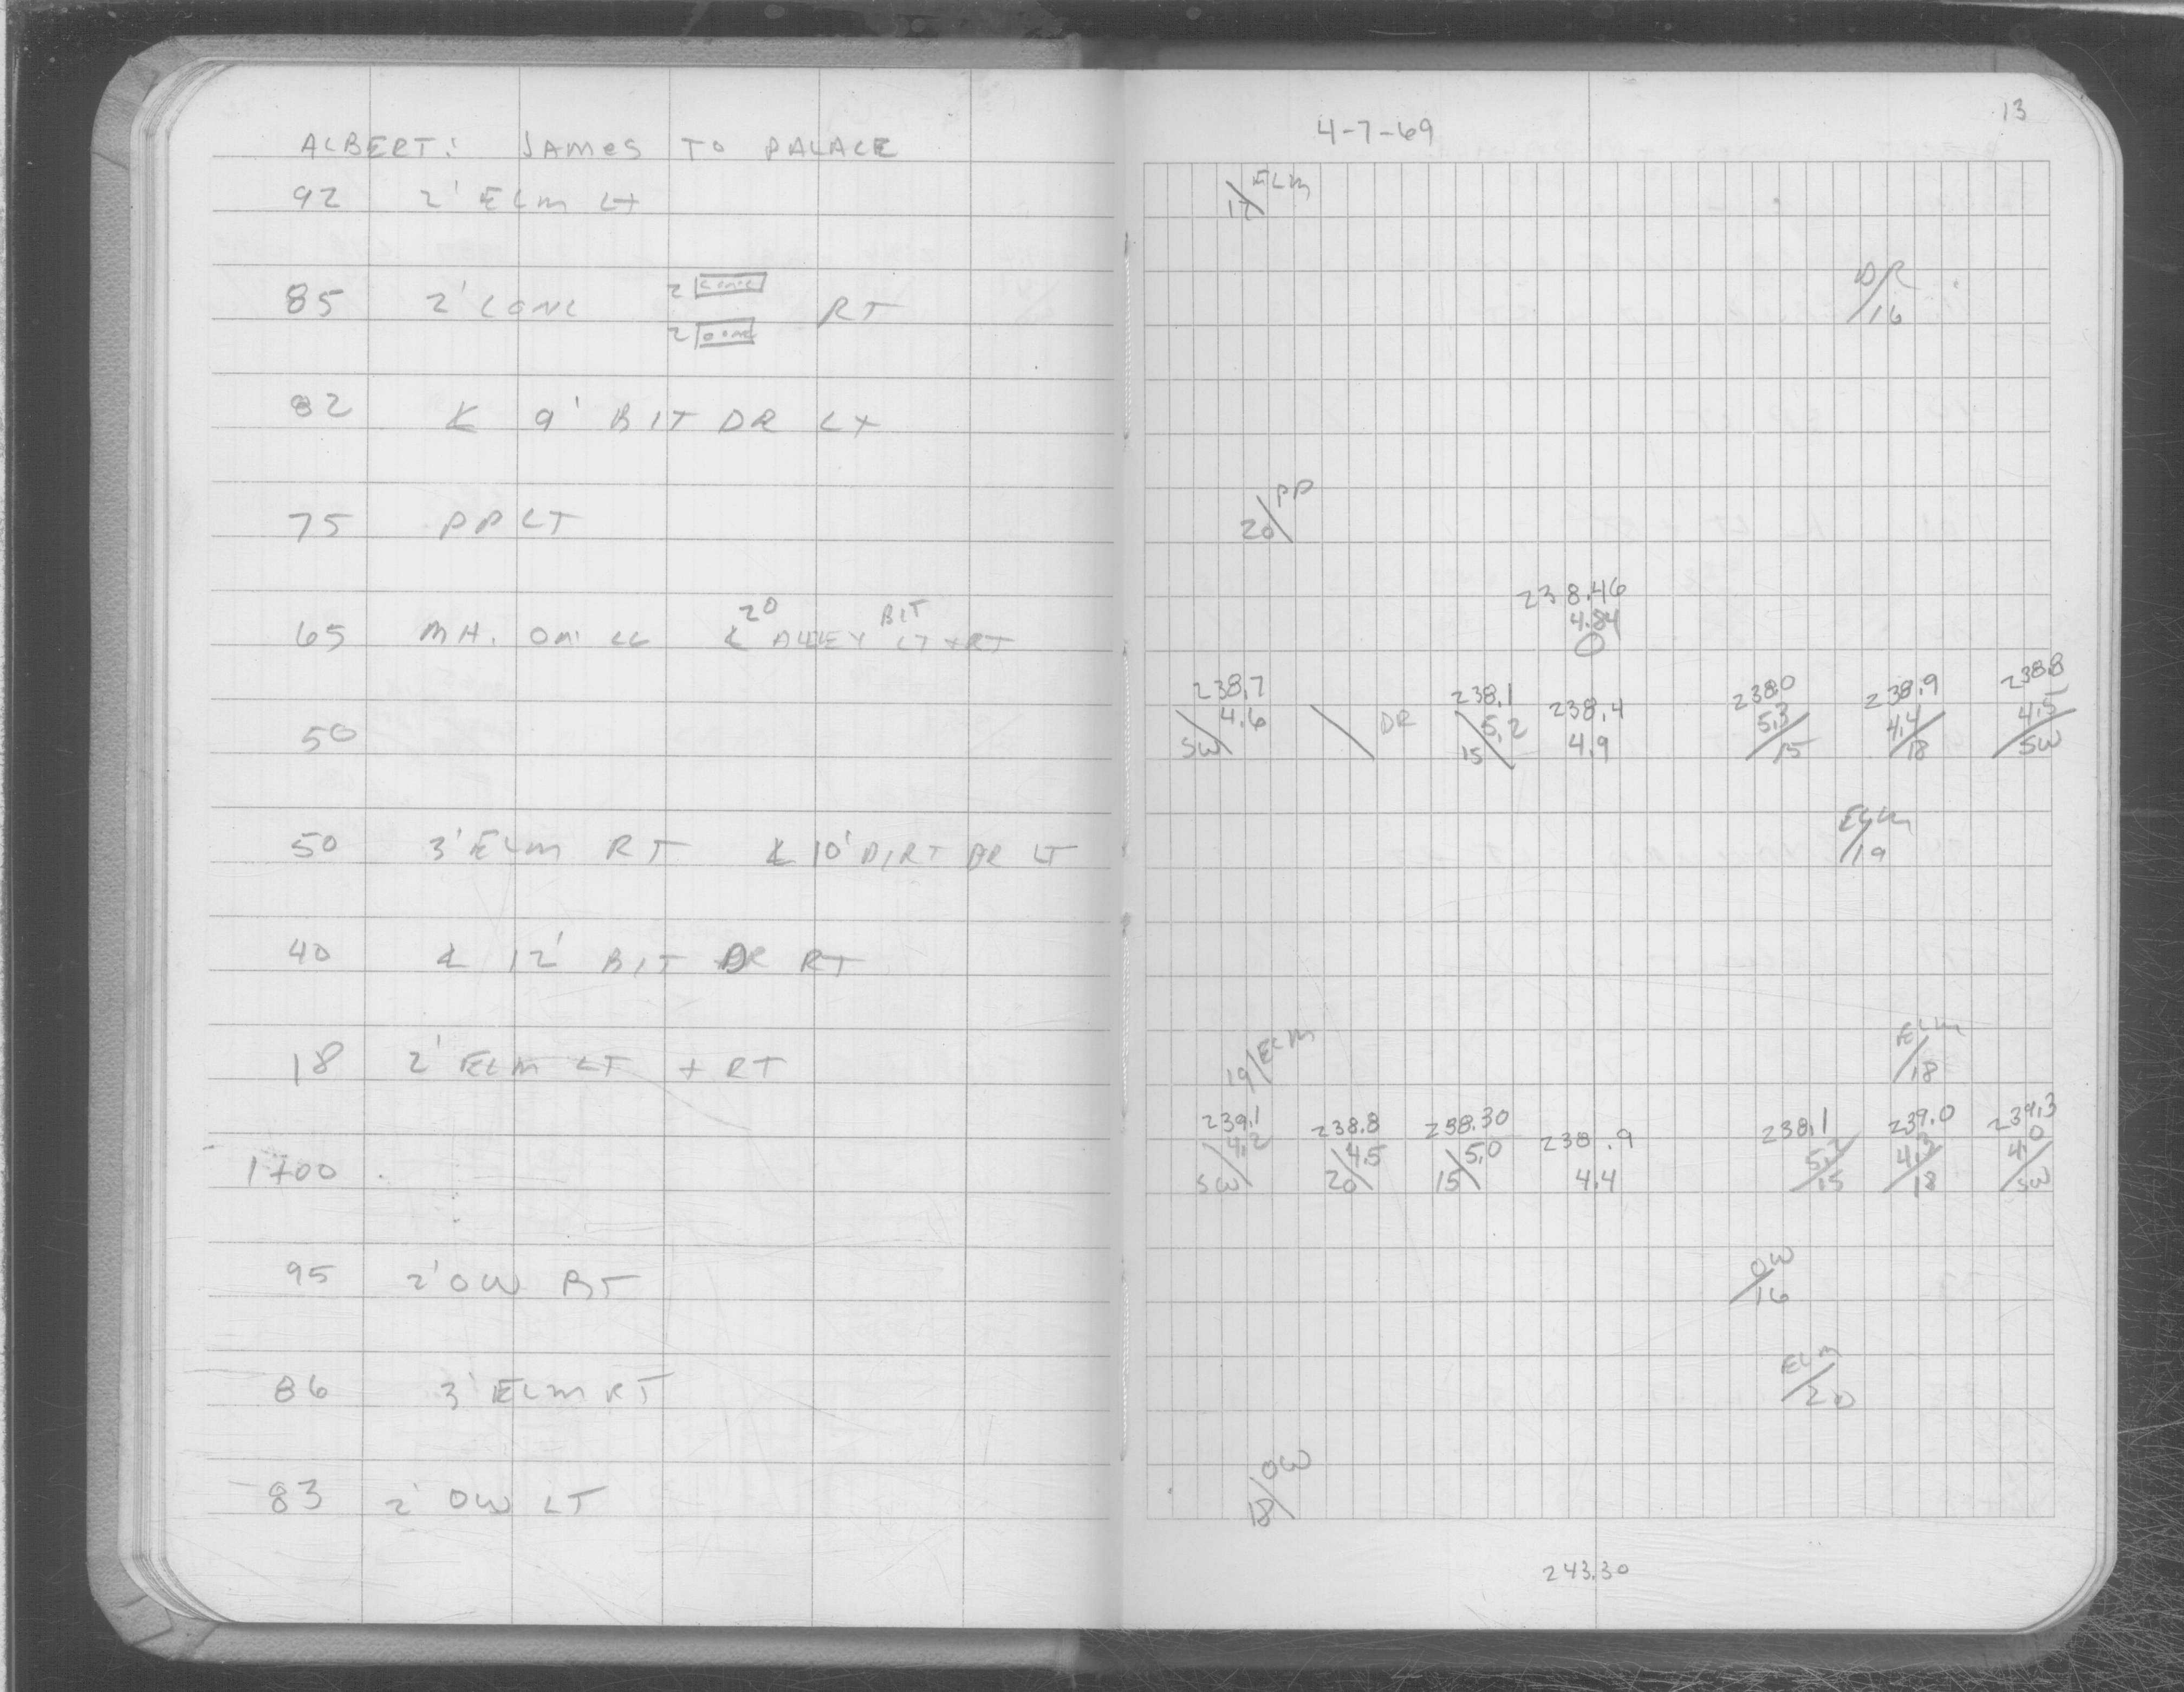 ALBERT: JAMES TO PALACE
92 2' ELM LT
85 2' CONC 2 CONC RT
2 CONC
82 ℄ 9' BIT DR LT
75 PP LT
20 BIT
65 MH. ON ℄ ℄ ALLEY LT + RT
50
50 3' ELM RT ℄ 10' DIRT DR LT
40 ℄ 12' BIT DR RT
18 2' ELM LT + RT
1+00
95 2' OW RT
86 3' ELM RT
83 2' OW LT
13
4-7-69
ELM
17
DR
16
PP
20
238.46
4.84
238.7 238.1 238.4 238.0 238.9 238.8
4.6 DR 5.2 4.9 5.3 4.4 4.5
SW 15 15 18 SW
ELM
19
ELM ELM
19 18
239.1 238.8 238.30 238.9 238.1 239.0 239.3
4.2 4.5 5.0 4.4 5.2 4.3 4.0
SW 20 15 15 18 SW
OW
16
ELM
20
OW
18
243.30